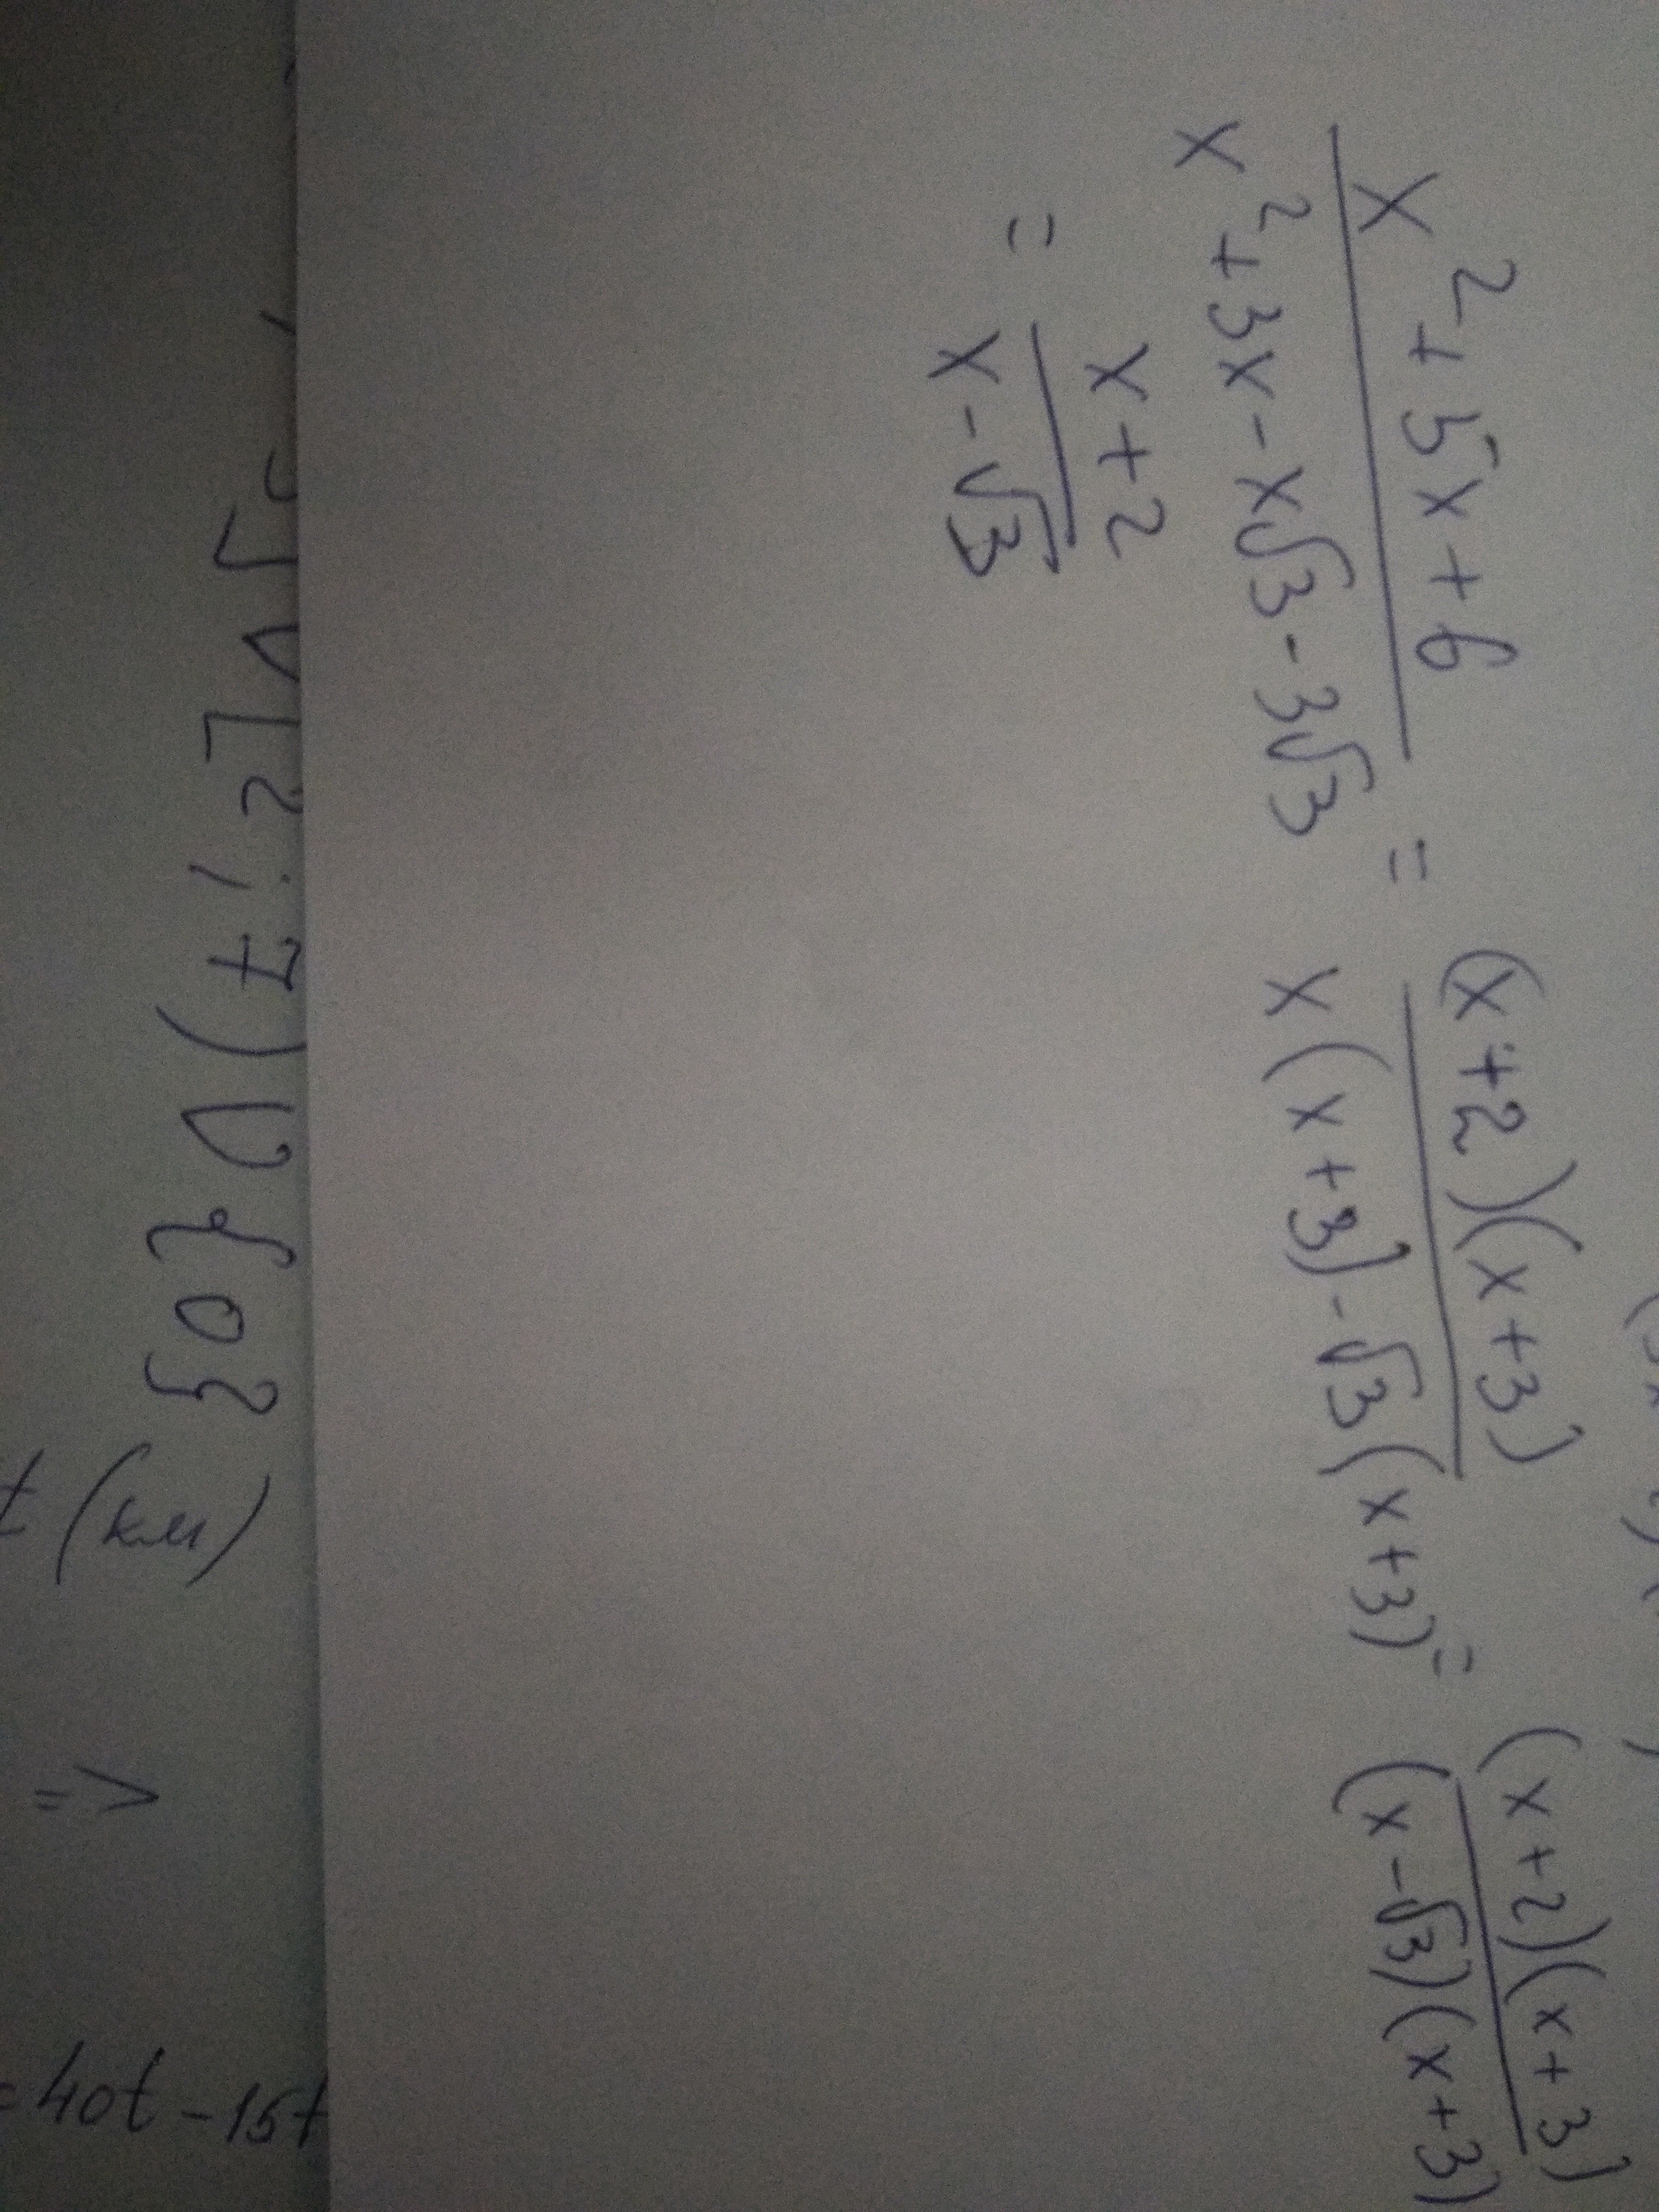 x² + 5x + 6 / x² + 3x - x√3 - 3√3 = (x+2)(x+3) / x(x+3) - √3(x+3) = (x+2)(x+3) / (x-√3)(x+3)
= x+2 / x-√3
; 7) ∪ {0}
t (км) => = 40t - 15t